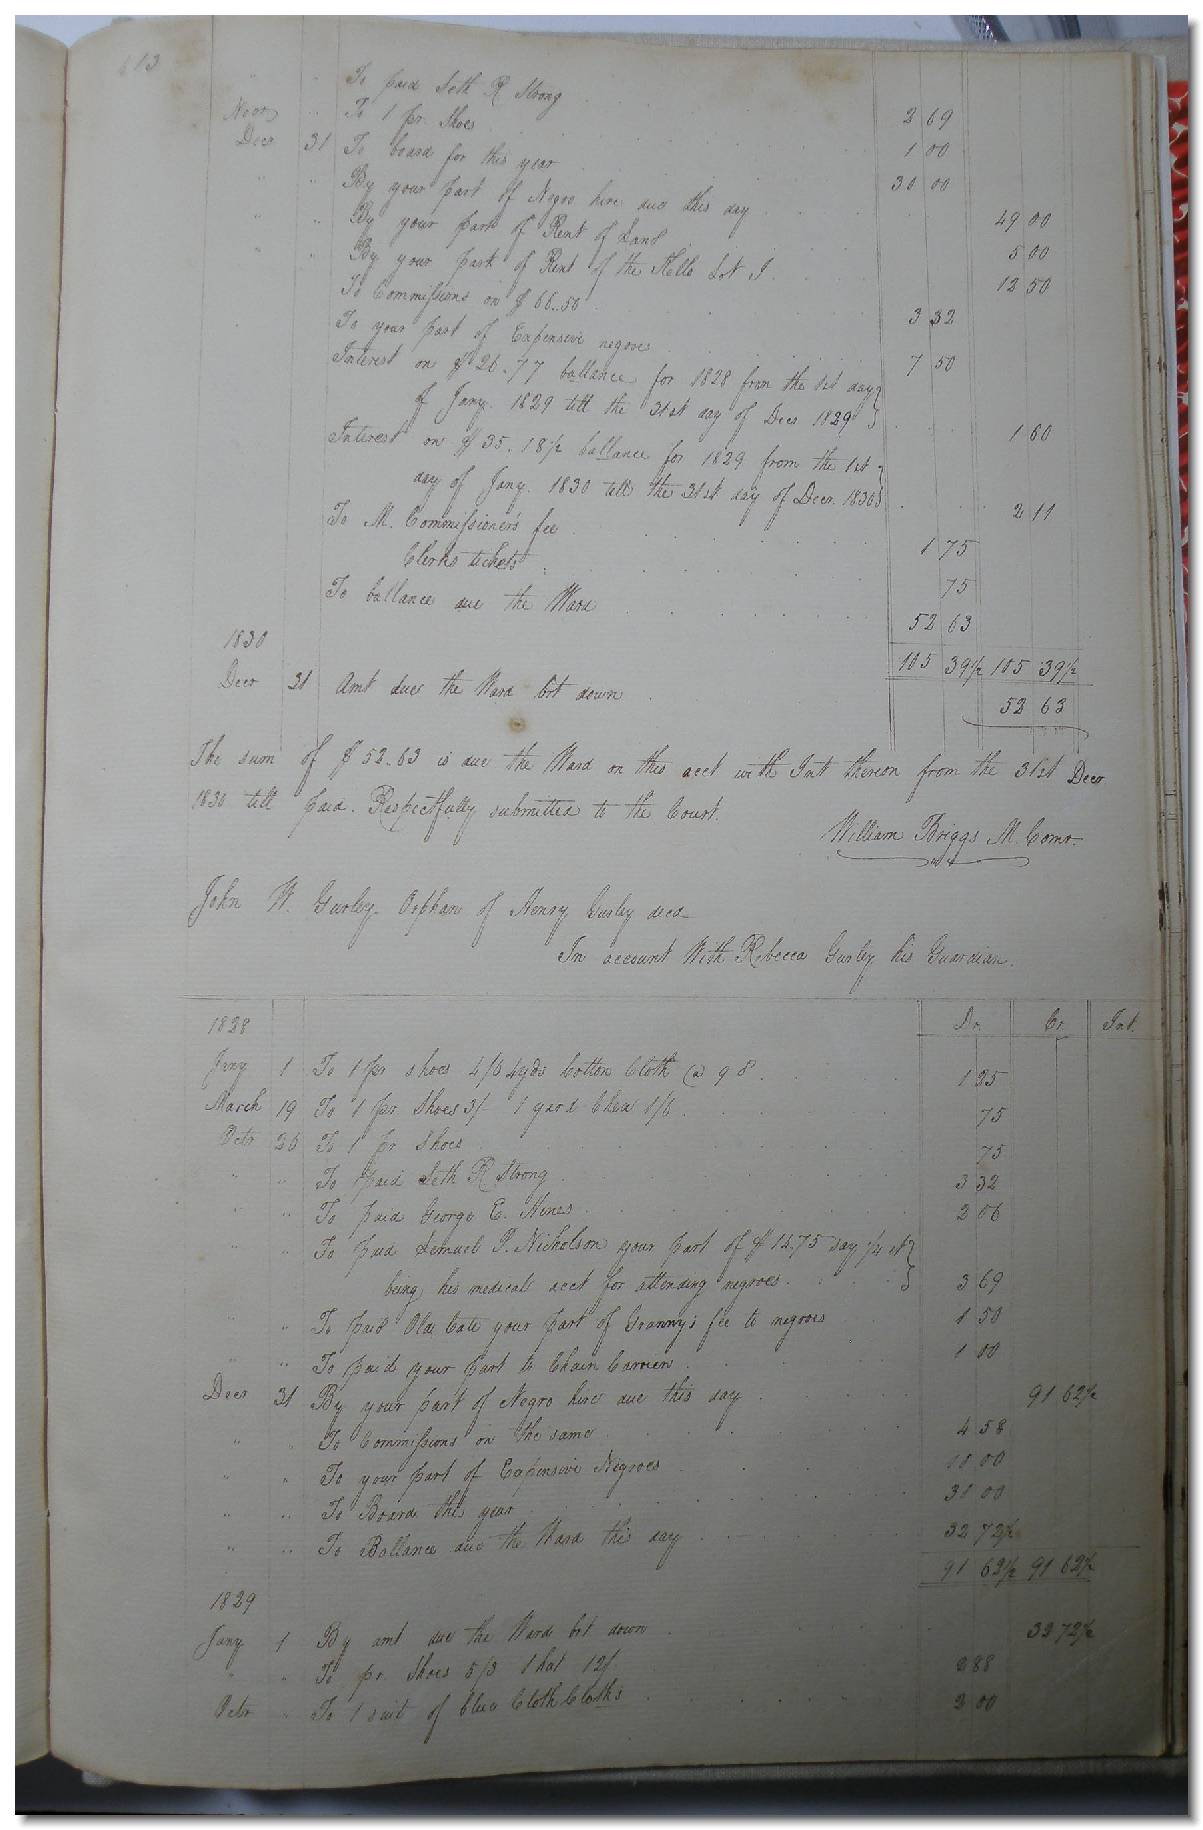 613
" " To paid Seth R Strong 2 69
Novr " To 1 pr. Shoes 1 00
Decr 31 To board for this year 30 00
" " By your part of Negro hire due this day 49 00
" " By your part of Rent of Land 5 00
" " By your part of Rent of the Lot 12 50
To Commissions on $66.50 3 32
To your part of Expensive negroes 7 50
Interest on $26.77 ballance for 1828 from the 1st day
of Jany. 1829 till the 31st day of Decr 1829 1 60
Interest on $35.18½ ballance for 1829 from the 1st
day of Jany. 1830 till the 31st day of Decr. 1830 2 11
To M. Commissioner's fee 1 75
Clerks tickets 75
To ballance due the Ward 52 63
1830 105 39½ 105 39½
Decr 31 Amt due the Ward bt down 52 63
The sum of $52.63 is due the Ward on this acct with Int thereon from the 31st Decr
1830 till paid. Respectfully submitted to the Court.
William Briggs M. Comr.
John W. Gurley Orphan of Henry Gurley decd
In account With Rebecca Gurley his Guardian.
1828 Dr. Cr. Int.
Jany 1 To 1 pr shoes 4/6 4yds Cotton Cloth @ 9 8 1 25
March 19 To 1 pr. Shoes 3/- 1 yard 1/6 75
Octr 25 To 1 pr Shoes 75
" " To paid Seth R Strong 3 32
" " To paid George E. Hines 2 06
" " To paid Lemuel P. Nicholson your part of $14.75 say ¼ it
being his medical acct for attending negroes. 3 69
" " To paid Cate your part of Granny's fee to negroes 1 50
" " To paid your part to Chain Carriers 1 00
Decr 31 By your part of Negro hire due this day 91 62½
" " To Commissions on the same 4 58
" " To your part of Expensive Negroes 10 00
" " To Board this year 31 00
" " To Ballance due the Ward this day 32 72½
91 62½ 91 62½
1829
Jany 1 By amt due the Ward bt down 32 72½
" " To pr. Shoes 5/3 1 hat 12/ 2 88
Octr " To 1 suit of blue Cloth Cloths 2 00